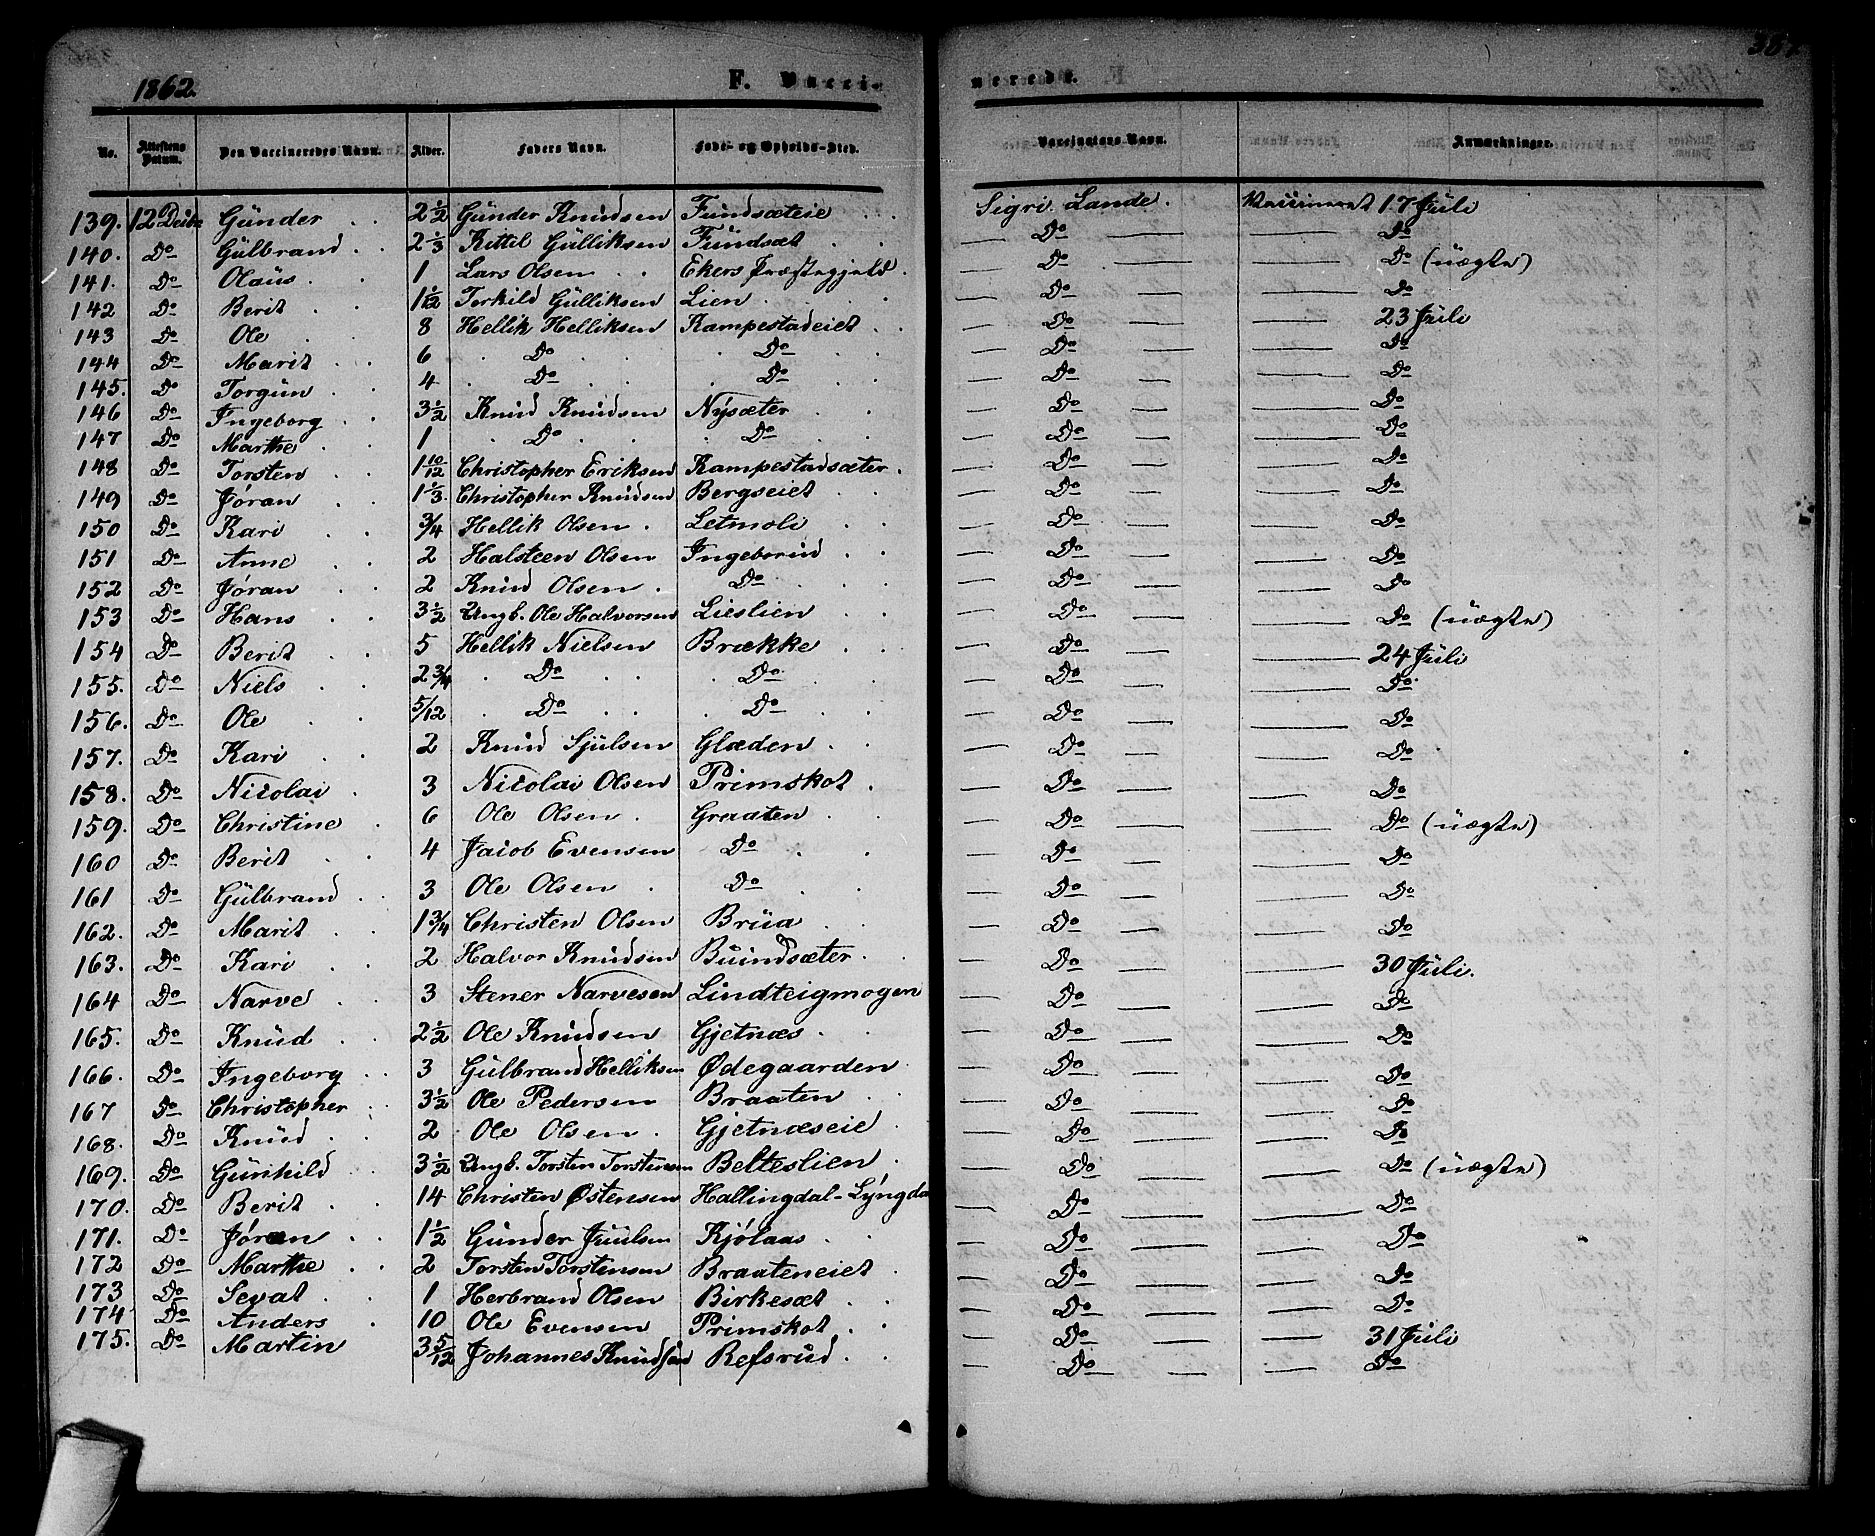 1862. F. Vaccinerede. 387
No. | Attestens Datum. | Den Vaccineredes Navn. | Alder. | Faders Navn. | Føde- og Opholds-Sted. | Vaccinators Navn. | Anmærkninger.
139. 12 Decbr Günder 2 1/2 Günder Knudsen Fundsæteie Sigri Lande. Vaccineret 17 Juli
140. Do Gülbrand 2 1/3 Kittil Gülliksen Fündsæt Do — Do
141. Do Olaüs 1 Lars Olsen Ekers Præstegjeld. Do — Do (uægte)
142 Do Berit 1 1/12 Torkild Gülliksen Lien Do — Do
143 Do Ole 8 Hellik Helliksen Kampestadeiet Do — 23 Juli
144 Do Marit 6 Do Do Do — Do
145. Do Torgün 4 Do Do Do — Do
146 Do Ingeborg 3 1/2 Knud Knudsen Nysæter Do — Do
147 Do Marthe 1 Do Do Do — Do
148 Do Torsten 1 10/12 Christopher Eriksen Kampestadsæter Do — Do
149 Do Jøran 1 1/3 Christopher Knudsen Bergseiet Do — Do
150 Do Kari 3/4 Hellik Olsen Letmoli Do — Do
151 Do Anne 2 Halsteen Olsen Ingeborud Do — Do
152 Do Jøran 2 Knud Olsen Do Do — Do
153 Do Hans 3 1/2 Ungk. Ole Halvorsen Lieslien Do — Do (uægte)
154 Do Berit 5 Hellik Nielsen Brække Do — 24 Juli
155. Do Niels 2 3/4 Do Do Do — Do
156. Do Ole 5/12 Do Do Do — Do
157. Do Kari 2 Knud Sjulsen Glæden Do — Do
158. Do Nicolai 3 Nicolai Olsen Primskot Do — Do
159. Do Christine 6 Ole Olsen Graaten Do — Do (uægte)
160 Do Berit 4 Jacob Evensen Do Do — Do
161 Do Gülbrand 3 Ole Olsen Do Do — Do
162. Do Marit 1 3/4 Christen Olsen Brüa Do — Do
163. Do Kari 2 Halvor Knudsen Buindsæter Do — 30 Juli.
164 Do Narve 3 Stener Narvesen Lindteigmogen Do — Do
165. Do Knüd 2 1/2 Ole Knudsen Gjetnæs Do — Do
166. Do Ingeborg 3 Gülbrand Helliksen Ødegaarden Do — Do
167 Do Christopher 3 1/2 Ole Pedersen Braaten Do — Do
168. Do Knüd 2 Ole Olsen Gjetnæseie Do — Do
169. Do Günhild 3 1/2 Ungk. Torsten Torstensen Belteslien Do — Do (uægte)
170. Do Berit 14 Christen Østensen Hallingdal-Lyngda Do — Do
171. Do Jøran 1 1/2 Günder Juulsen Kjølaas Do — Do
172 Do Marthe 2 Torsten Torstensen Braateneiet Do — Do
173 Do Sevat 1 Herbrand Olsen Birkesæt Do — Do
174 Do Anders 10 Ole Evensen Primskot Do — 31 Juli
175. Do Martin 3 5/12 Johannes Knudsen Refsrud Do — Do